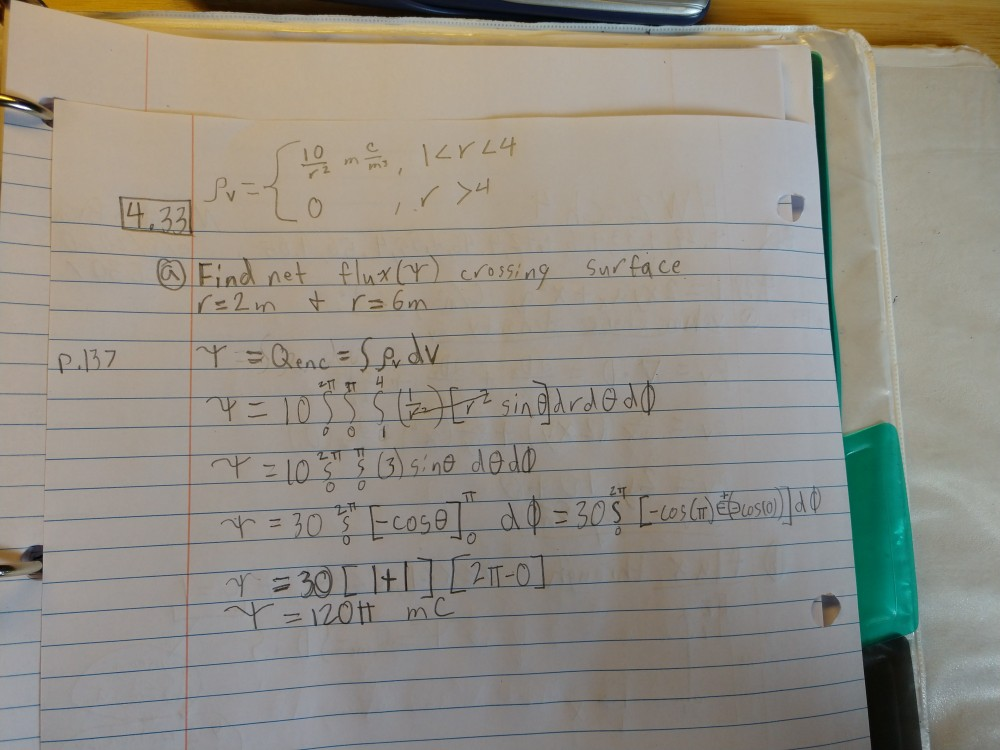 ρv = { 10/r² m C/m³, 1<r<4
0 , r >4
4.33
(a) Find net flux(Ψ) crossing surface
r=2m & r=6m
p.137
Ψ = Qenc = ∫ρv dv
Ψ = 10 ∫₀^2π ∫₀^π ∫₁^4 (1/r²) [r² sinθ] dr dθ dϕ
Ψ = 10 ∫₀^2π ∫₀^π (3) sinθ dθ dϕ
Ψ = 30 ∫₀^2π [-cosθ]₀^π dϕ = 30 ∫₀^2π [-cos(π) + cos(0))] dϕ
Ψ = 30 [1+1] [2π-0]
Ψ = 120π mC